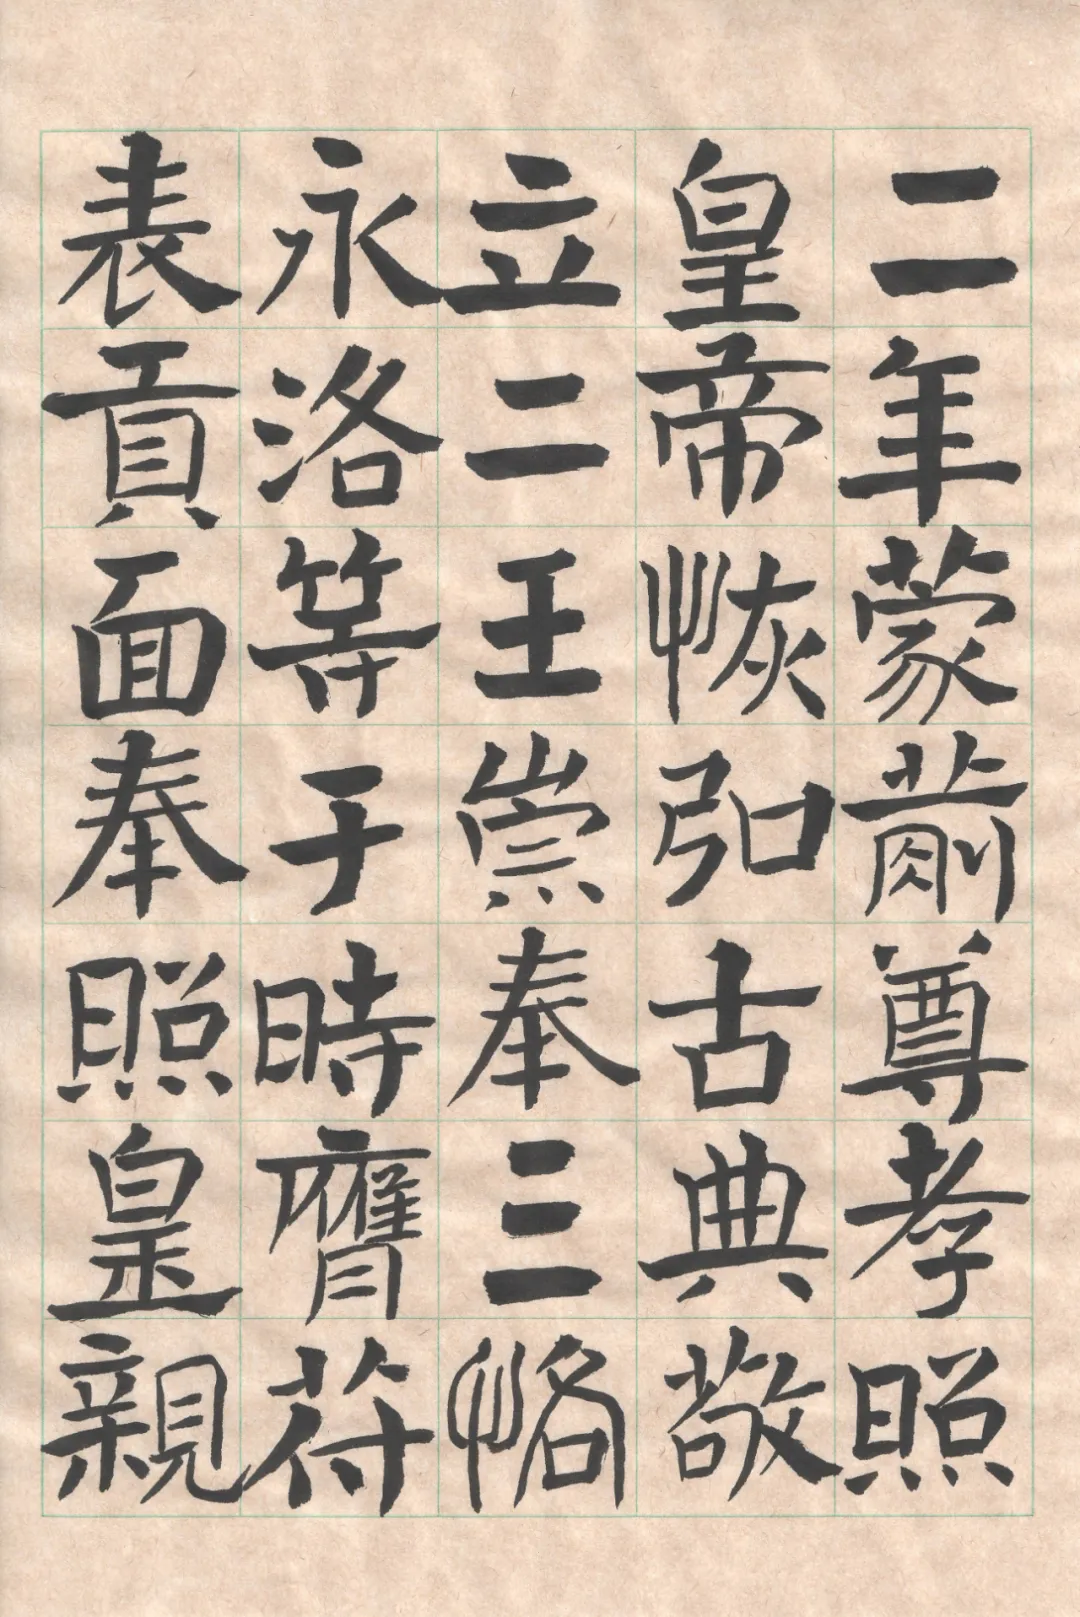 二年蒙前尊孝照
皇帝恢弘古典敬
立二王崇奉三恪
永洛等于時膺符
表貢面奉照皇親